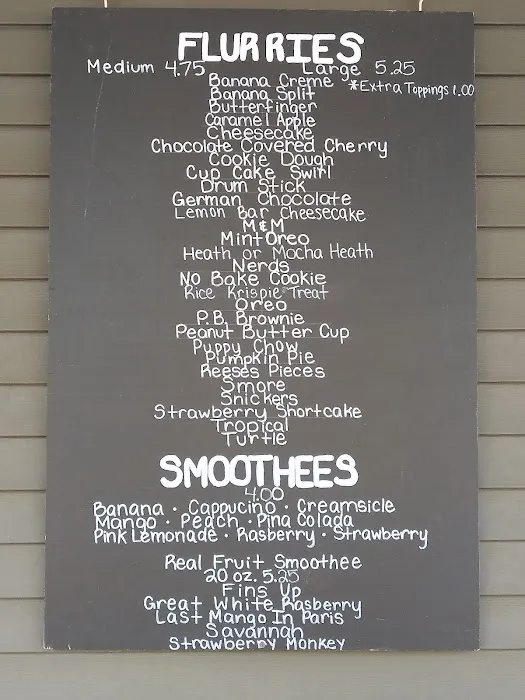 FLURRIES
Medium 4.75 Large 5.25
Banana Creme *Extra Toppings 1.00
Banana Split
Butterfinger
Caramel Apple
Cheesecake
Chocolate Covered Cherry
Cookie Dough
Cup Cake Swirl
Drum Stick
German Chocolate
Lemon Bar Cheesecake
M&M
Mint Oreo
Heath or Mocha Heath
Nerds
No Bake Cookie
Rice Krispie Treat
Oreo
P.B. Brownie
Peanut Butter Cup
Puppy Chow
Pumpkin Pie
Reeses Pieces
Smore
Snickers
Strawberry Shortcake
Tropical
Turtle
SMOOTHEES
4.00
Banana · Cappucino · Creamsicle
Mango · Peach · Pina Colada
Pink Lemonade · Rasberry · Strawberry
Real Fruit Smoothee
20 oz. 5.25
Fins Up
Great White Rasberry
Last Mango In Paris
Savannah
Strawberry Monkey